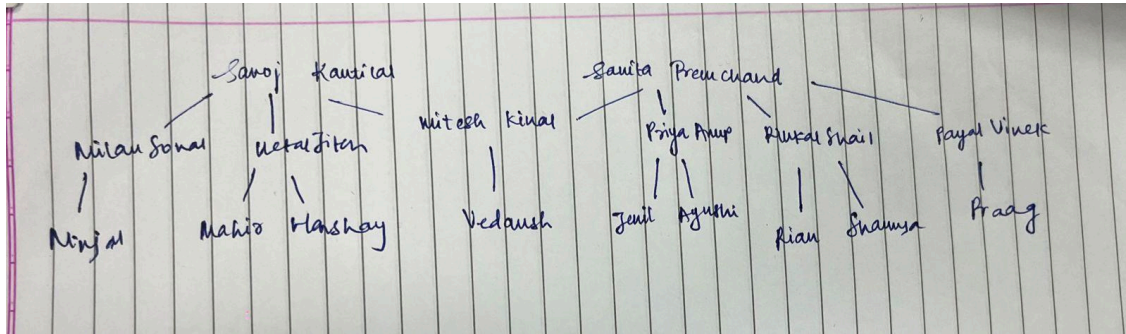 Saroj Kantilal Sarita Premchand
Milan Sonal Hetal Jiten Mitesh Kinal Priya Anup Rinkal Shail Payal Vivek
Ninja Mahir Hanshay Vedansh Jenil Ayushi Rian Shamya Praag